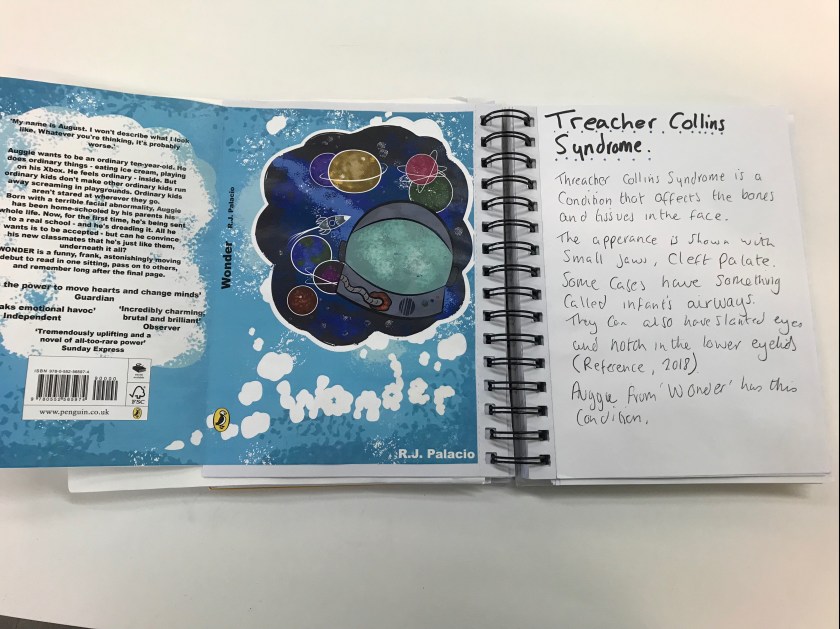 'My name is August. I won't describe what I look
like. Whatever you're thinking, it's probably
worse.'
Auggie wants to be an ordinary ten-year-old. He
does ordinary things - eating ice cream, playing
on his Xbox. He feels ordinary - inside. But
ordinary kids don't make other ordinary kids run
away screaming in playgrounds. Ordinary kids
aren't stared at wherever they go.
Born with a terrible facial abnormality, Auggie
has been home-schooled by his parents his
whole life. Now, for the first time, he's being sent
to a real school - and he's dreading it. All he
wants is to be accepted - but can he convince
his new classmates that he's just like them,
underneath it all?
WONDER is a funny, frank, astonishingly moving
debut to read in one sitting, pass on to others,
and remember long after the final page.
the power to move hearts and change minds'
Guardian
'Incredibly charming,
brutal and brilliant'
Observer
emotional havoc'
Independent
'Tremendously uplifting and a
novel of all-too-rare power'
Sunday Express
FSC
www.penguin.co.uk
Wonder R.J. Palacio
Wonder
R.J. Palacio
Treacher Collins
Syndrome.
Threacher Collins Syndrome is a
Condition that affects the bones
and tissues in the face.
The apperance is shown with
Small jaws, Cleft Palate.
Some Cases have Something
Called infants airways.
They can also have slanted eyes
and notch in the lower eyelids
(Reference, 2018)
Auggie from 'Wonder' has this
Condition.